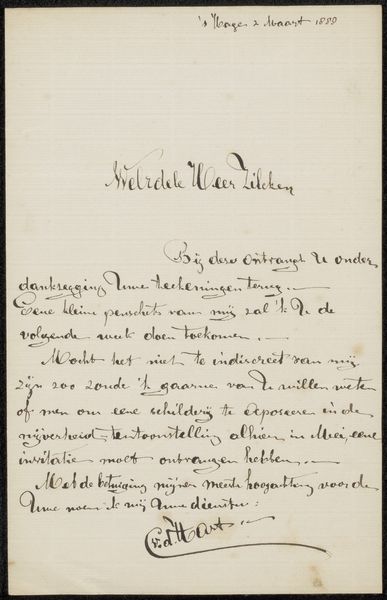 's Hage 2 Maart 1888
WelEdele Heer Zilcken
Bij dese ontvangt U onder
dankzegging Uwe teekeningen terug.
Eene kleine penschets van mij zal 'k U de
volgende week doen toekomen.
Mocht het niet te indiscreet van mij
zijn zoo zoude 'k gaarne van U willen weten
of men om eene schilderij te exposeeren in de
nijverheid-tentoonstelling alhier in Mei, eene
invitatie moet ontvangen hebben.
Met de betuiging mijner meeste hoogachting voor de
Uwe noem ik mij Uwe dienstw: